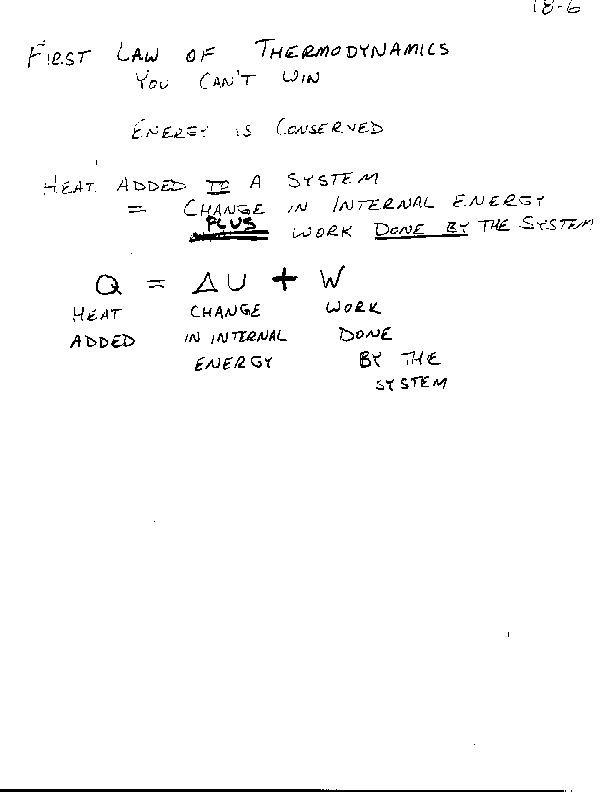 18-6
FIRST LAW OF THERMODYNAMICS
YOU CAN'T WIN
ENERGY IS CONSERVED
HEAT ADDED TO A SYSTEM
= CHANGE IN INTERNAL ENERGY
PLUS WORK DONE BY THE SYSTEM
Q = ΔU + W
HEAT CHANGE WORK
ADDED IN INTERNAL DONE
ENERGY BY THE
SYSTEM